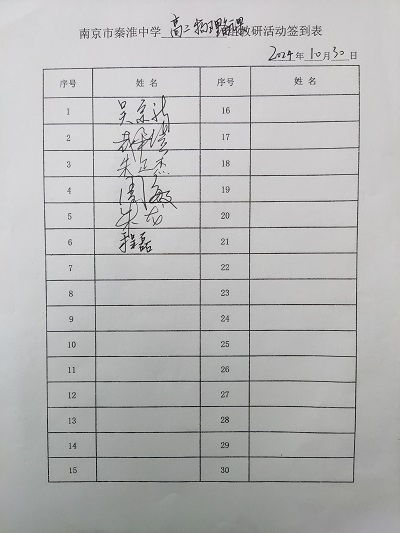 南京市秦淮中学 高二物理 教研活动签到表
2024年10月30日
序号 姓名 序号 姓名
1 吴京 16
2 17
3 朱正杰 18
4 周敏 19
5 朱 20
6 程磊 21
7 22
8 23
9 24
10 25
11 26
12 27
13 28
14 29
15 30